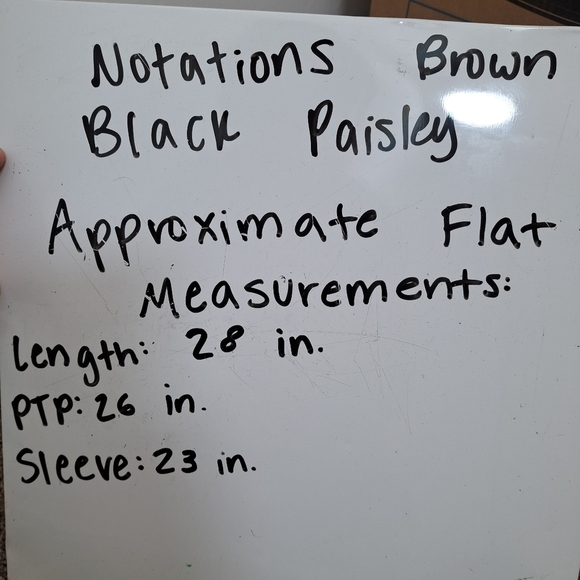 Notations Brown
Black Paisley
Approximate Flat
Measurements:
Length: 28 in.
PTP: 26 in.
Sleeve: 23 in.